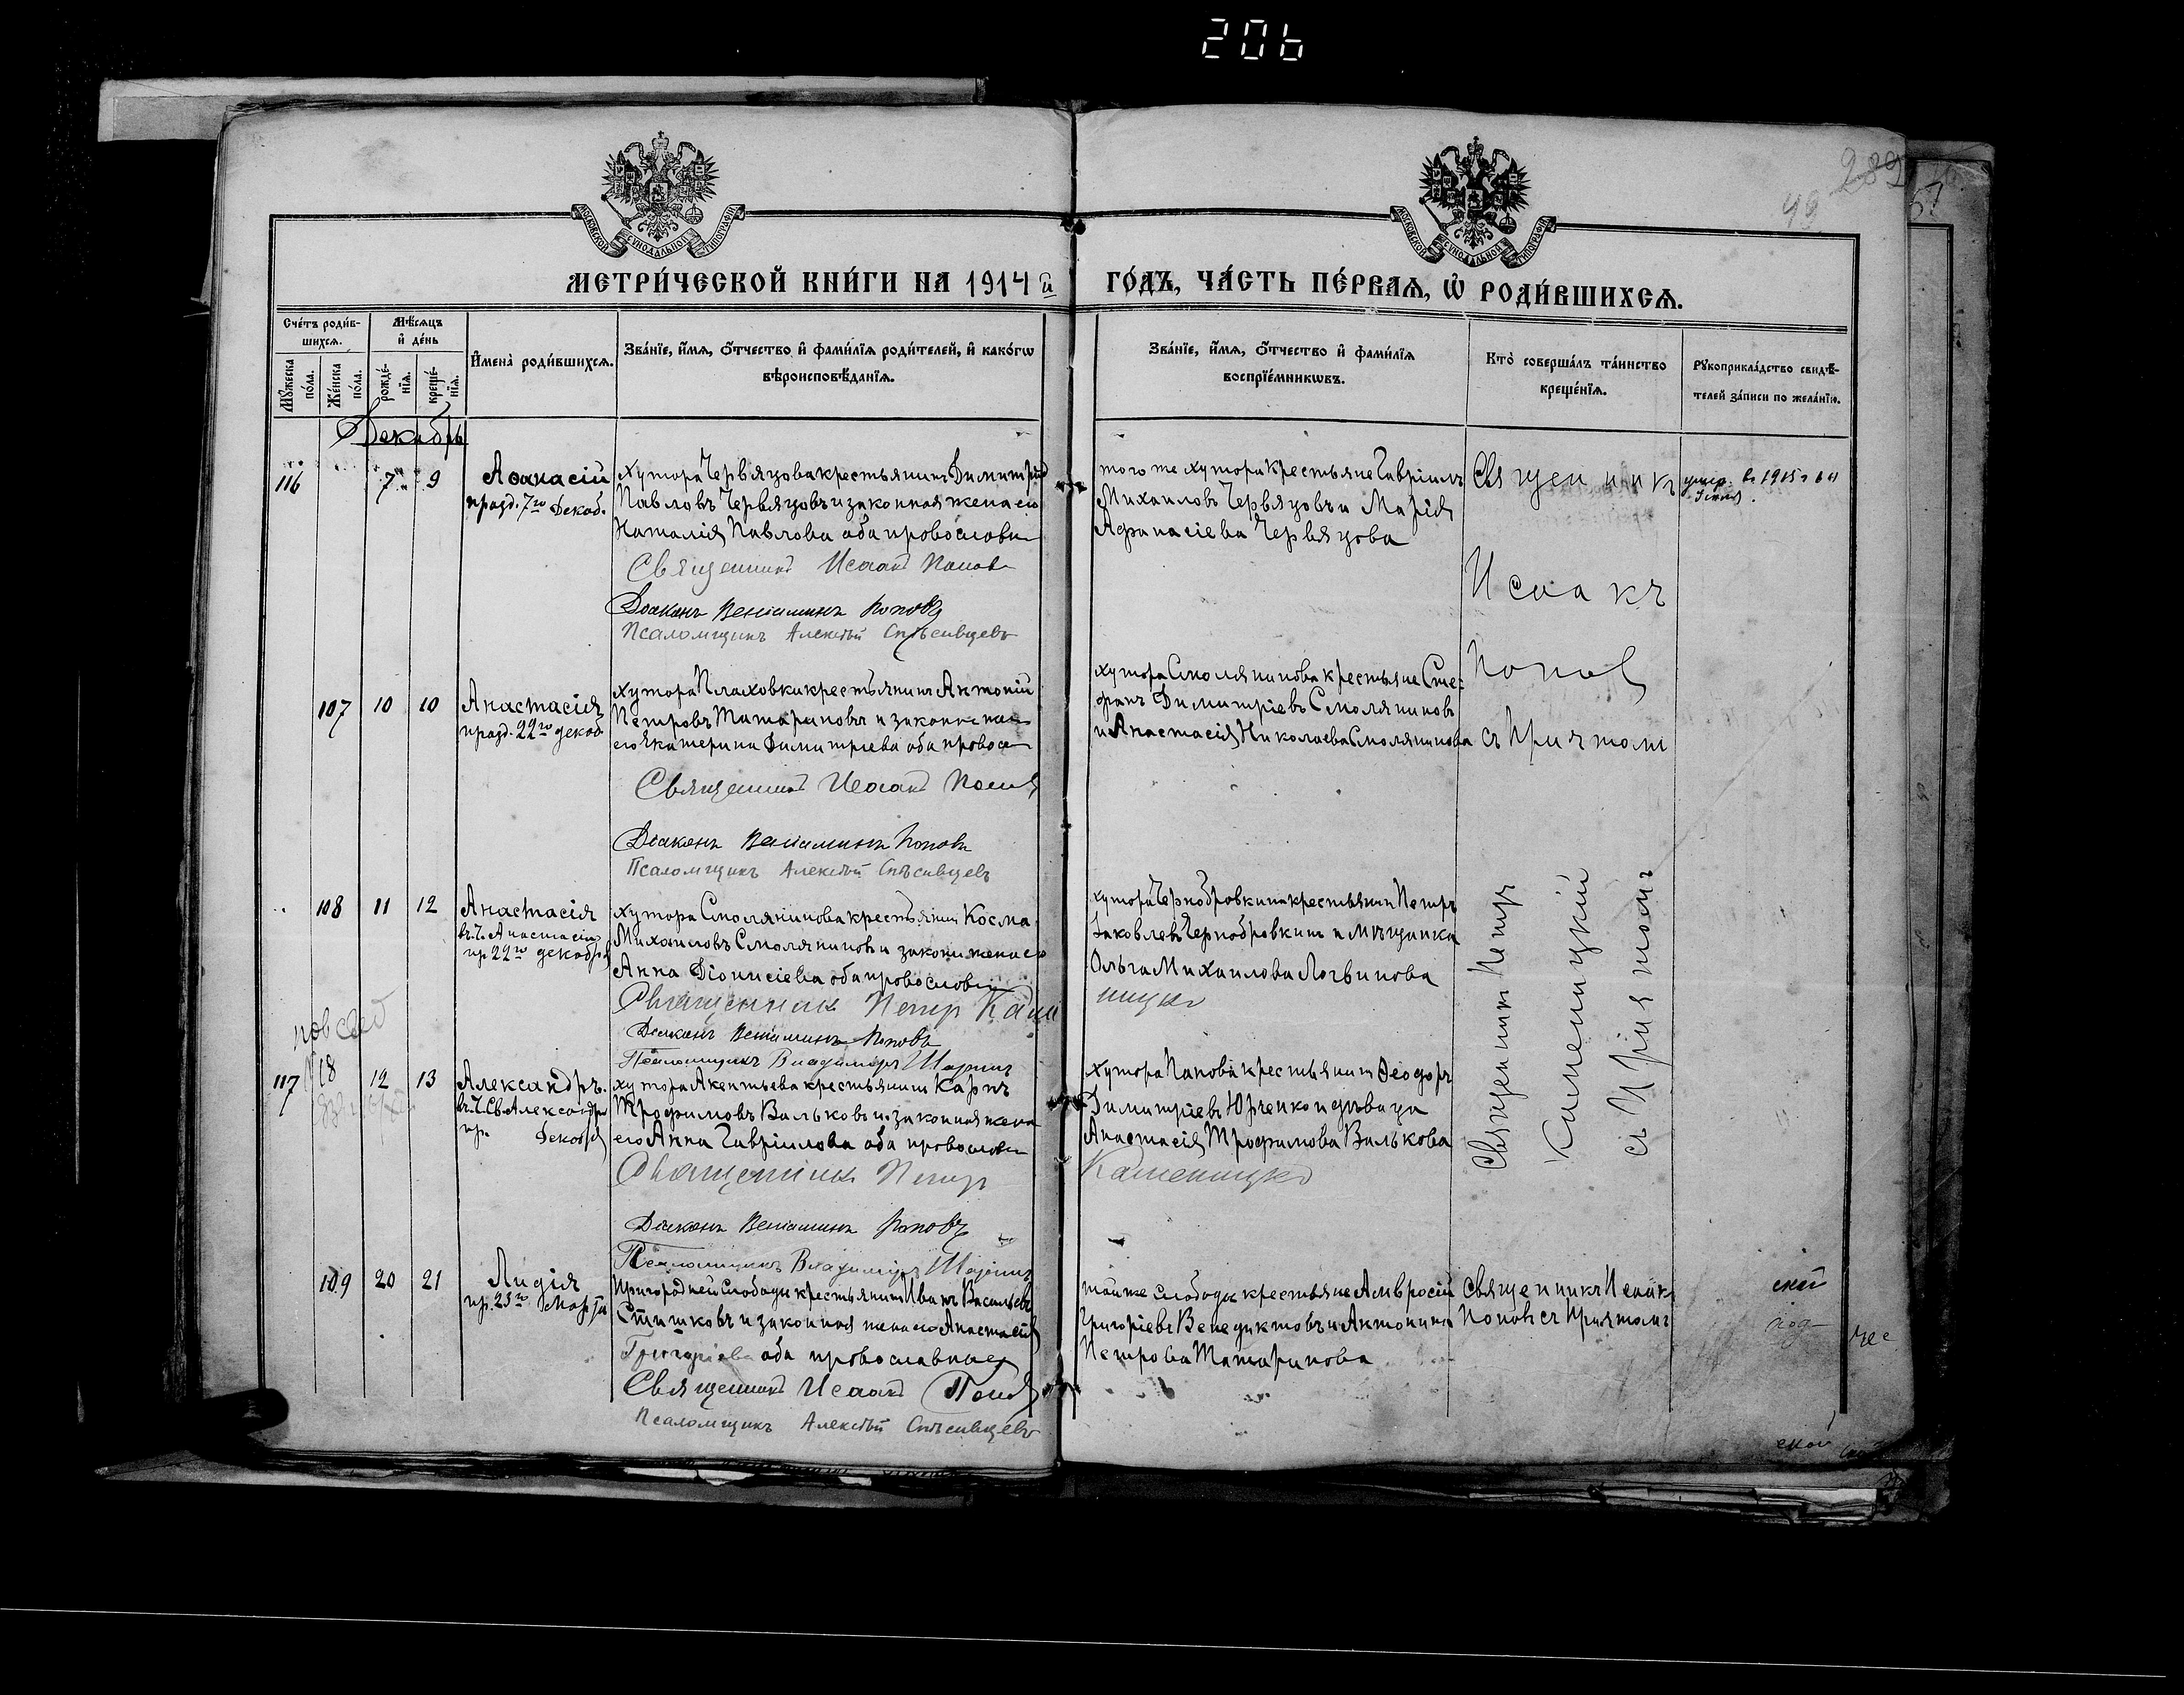 206
289
49
МОСКОВСКОЙ СѴНОДАЛЬНОЙ ТИПОГРАФІИ
МОСКОВСКОЙ СѴНОДАЛЬНОЙ ТИПОГРАФІИ
МЕТРИ́ЧЕСКОЙ КНИ́ГИ НА 1914 й ГО́ДЪ, ЧА́СТЬ ПЕ́РВАѦ, Ѽ РОДИ́ВШИХСѦ.
Сче́тъ роди́в-
шихсѧ.
Мꙋжеска по́ла.
Же́нска по́ла.
Мѣ́сѧцъ и҆ де́нь
рожде́-
нїѧ.
креще́-
нїѧ.
И҆мена̀ роди́вшихсѧ.
Зва́нїе, и҆́мѧ, ѻ҆́тчество и҆ фами́лїѧ роди́телей, и҆ како́гѡ
вѣроисповѣ́данїѧ.
Зва́нїе, и҆́мѧ, ѻ҆́тчество и҆ фами́лїѧ
воспрїе́мникѡвъ.
Кто̀ соверша́лъ та́инство
креще́нїѧ.
Рꙋкоприкла́дство свидѣ́-
телей за́писи по жела́нїю.
Декабрь
116 7 9 Аѳанасій
празд. 7го Декаб.
хутора Червяцова крестьянинъ Димитрій
Павловъ Червяцовъ и законная жена его
Наталія Павлова оба провославн
Священникъ Исаакъ Поповъ
Діаконъ Веніаминъ Поповъ
Псаломщикъ Алексѣй Спѣсивцевъ
того же хутора крестьяне Гавріилъ
Михаиловъ Червяцовъ и Марія
Афанасіева Червяцова
Священникъ
Исаакъ
Поповъ
съ Причтомъ
умер. въ 1915 г 6
107 10 10 Анастасія
празд. 22го декаб
хутора Плаховки крестьянинъ Антоній
Петровъ Татариновъ и законн жена
его Екатерина Димитріева оба провосл
Священникъ Исаакъ Поповъ
Діаконъ Веніаминъ Поповъ
Псаломщикъ Алексѣй Спѣсивцевъ
хутора Смолянинова крестьяне Сте-
фанъ Димитріевъ Смоляниновъ
и Анастасія Николаева Смолянинова
108 11 12 Анастасія
въ ч. Анастасіи
пр 22го декабря
хутора Смолянинова крестьянин Косма
Михаиловъ Смоляниновъ и законн жена его
Анна Діонисіева оба провославн
Священникъ Петръ Каме
ницкі
Діаконъ Веніаминъ Поповъ
Псаломщикъ Владимиръ
хутора Чернобровкина крестьянин Петръ
Іаковлевъ Чернобровкинъ и мѣщанка
Ольга Михаилова Логвинова
Священникъ Петръ
Каменицкій
съ Причтомъ
117 12 13 Александръ.
въ ч. Св. Александра
пр. Декабря
хутора Акентьева крестьянин Карпъ
Трофимовъ Вальковъ и законная жена
его Анна Гавріилова оба провославн
Священникъ Петръ
Каменицкі
Діаконъ Веніаминъ Поповъ
Псаломщикъ Владимиръ
хутора Панова крестьянин Ѳеодоръ
Димитріевъ Юрченко и дѣвица
Анастасія Трофимова Валькова
109 20 21 Лидія
пр. 23го Марта
Пригородней слободы крестьянин Иванъ Васильевъ
Стишковъ и законная жена его Анастасія
Григоріева оба провославные
Священникъ Исаакъ Поповъ
Псаломщикъ Алексѣй Спѣсивцевъ
той же слободы крестьяне Амвросій
Григоріевъ Венедиктовъ и Антонина
Петрова Татаринова
священникъ Исаак
Поповъ съ Причтомъ